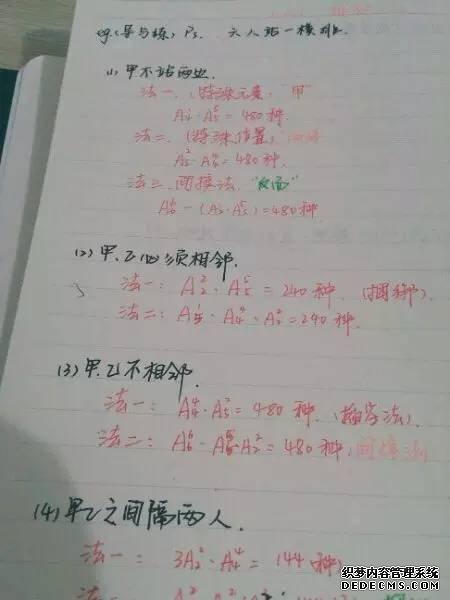 eg(导与练) P3. 六人站一横排.
(1) 甲不站两边.
法一、(特殊元素: 甲
A₄¹·A₅⁵ = 480 种.
法二、(特殊位置)
A₅²·A₄⁴ = 480 种.
法三、间接法, "反面"
A₆⁶ - (A₂¹·A₅⁵) = 480 种
(2) 甲.乙必须相邻.
法一: A₂²·A₅⁵ = 240 种. (捆绑).
法二: A₅¹·A₄⁴·A₂² = 240 种.
(3) 甲.乙不相邻.
法一: A₄⁴·A₅² = 480 种. (插空法).
法二: A₆⁶ - A₅⁵·A₂² = 480 种. 间接法
(4) 甲乙之间隔两人.
法一: 3A₂²·A₄⁴ = 144 种)
法二:
织梦内容管理系统
DEDECMS.COM